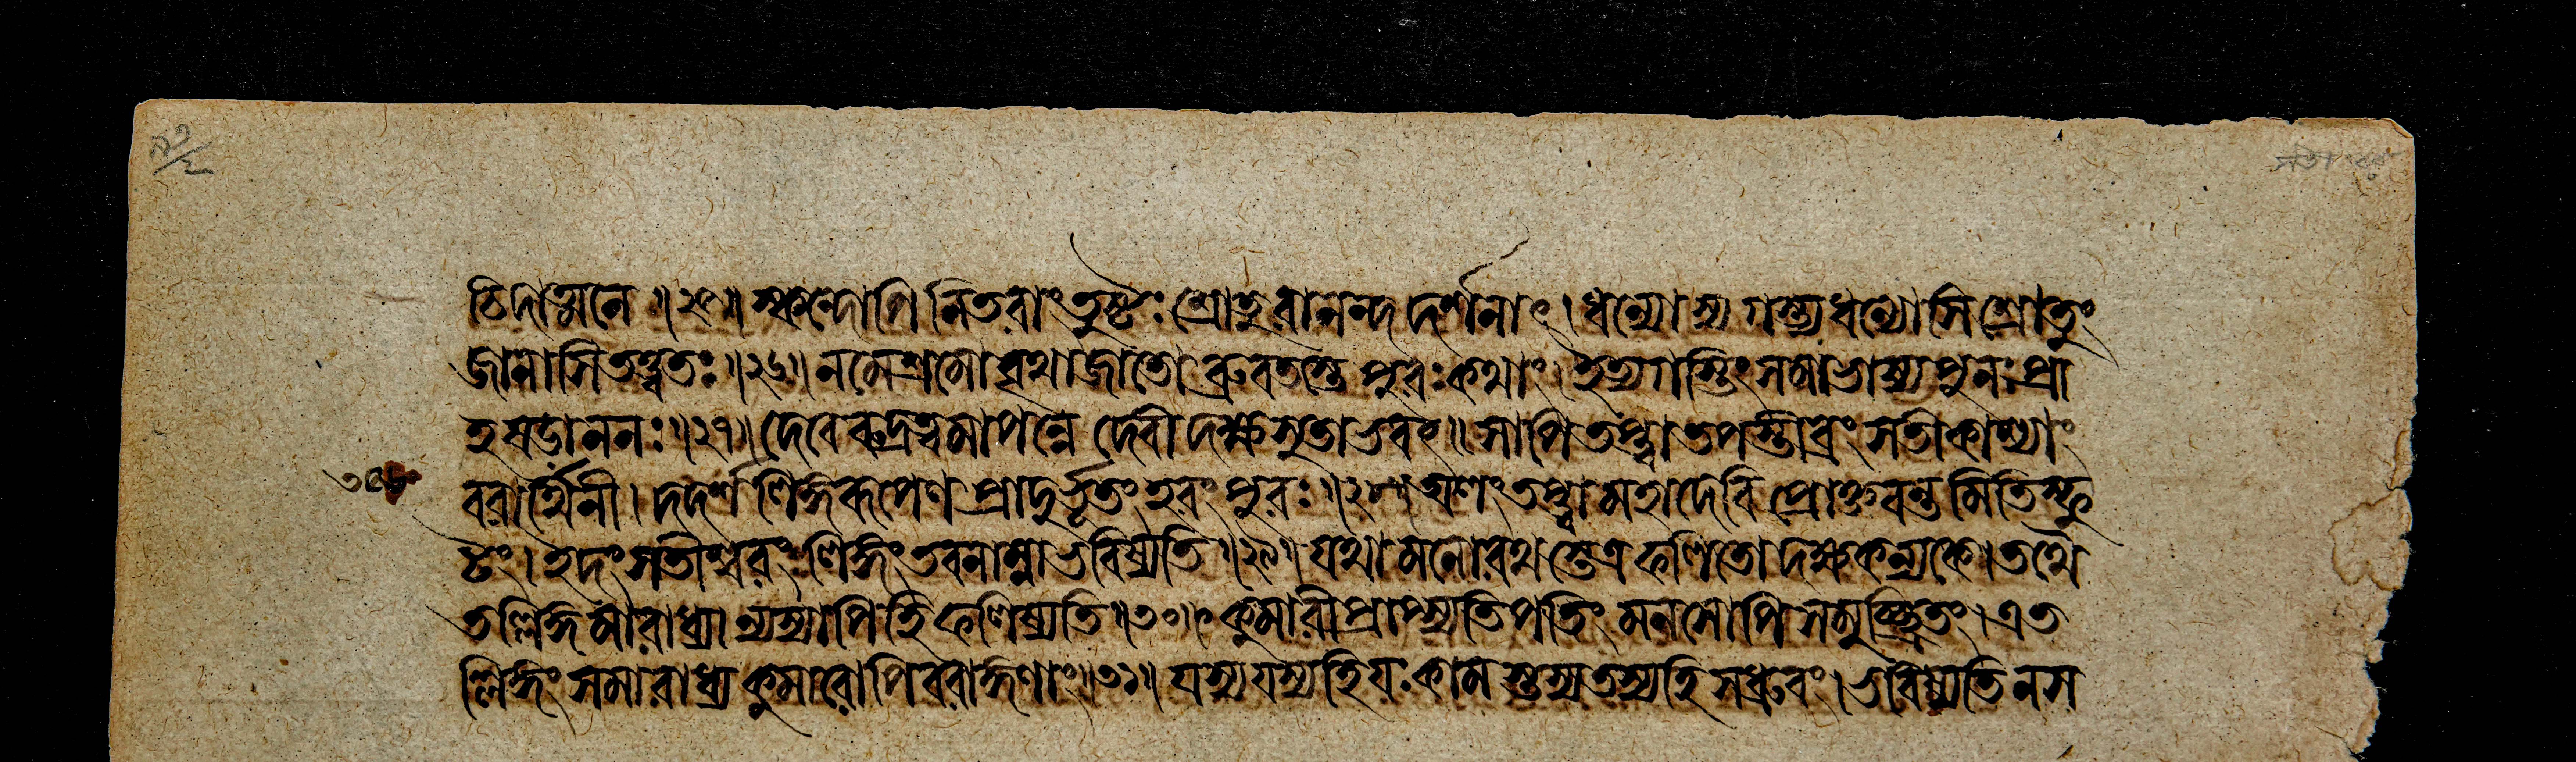 চিদাত্মনে ॥২৫॥ স্কন্দোপি নিতরাং তুষ্টঃ শ্রোতুরানন্দদর্শনাৎ। ধন্যোস্যগস্ত্য ধন্যোসি শ্রোতুং
জানাসি তত্ত্বতঃ ॥২৬॥ ন মে শ্রমো বৃথা জাতো ব্রুবতস্তে পুরঃ কথাং। ইত্যগস্তিং সমাভাষ্য পুনঃ প্রা
হ ষডাননঃ ॥২৭॥ দেবে রুদ্রত্বমাপন্নে দেবী দক্ষসুতাভবৎ॥ সাপি তপ্ত্বা তপস্তীব্রং সতী কাশ্যাং
বরার্থিনী। দদর্শ লিঙ্গরূপেণ প্রাদুর্ভূতং হরং পুরঃ ॥২৮॥ অলং তপ্ত্বা মহাদেবি প্রোক্তবন্তমিতি স্ফু
টং। ইদং সতীশ্বরং লিঙ্গং তব নাম্না ভবিষ্যতি ॥২৯॥ যথা মনোরথস্তেত্র ফলিতো দক্ষকন্যকে। তথৈ
তল্লিঙ্গমারাধ্যান্যস্যাপি হি ফলিষ্যতি ॥৩০॥ কুমারী প্রাপ্স্যতি পতিং মনসোপি সমুচ্ছ্রিতং। এত
ল্লিঙ্গং সমারাধ্য কুমারোপি বরাঙ্গনাং॥৩১॥ যস্য যস্য হি যঃ কামস্তস্য তস্য হি স ধ্রুবং। ভবিষ্যতি ন স